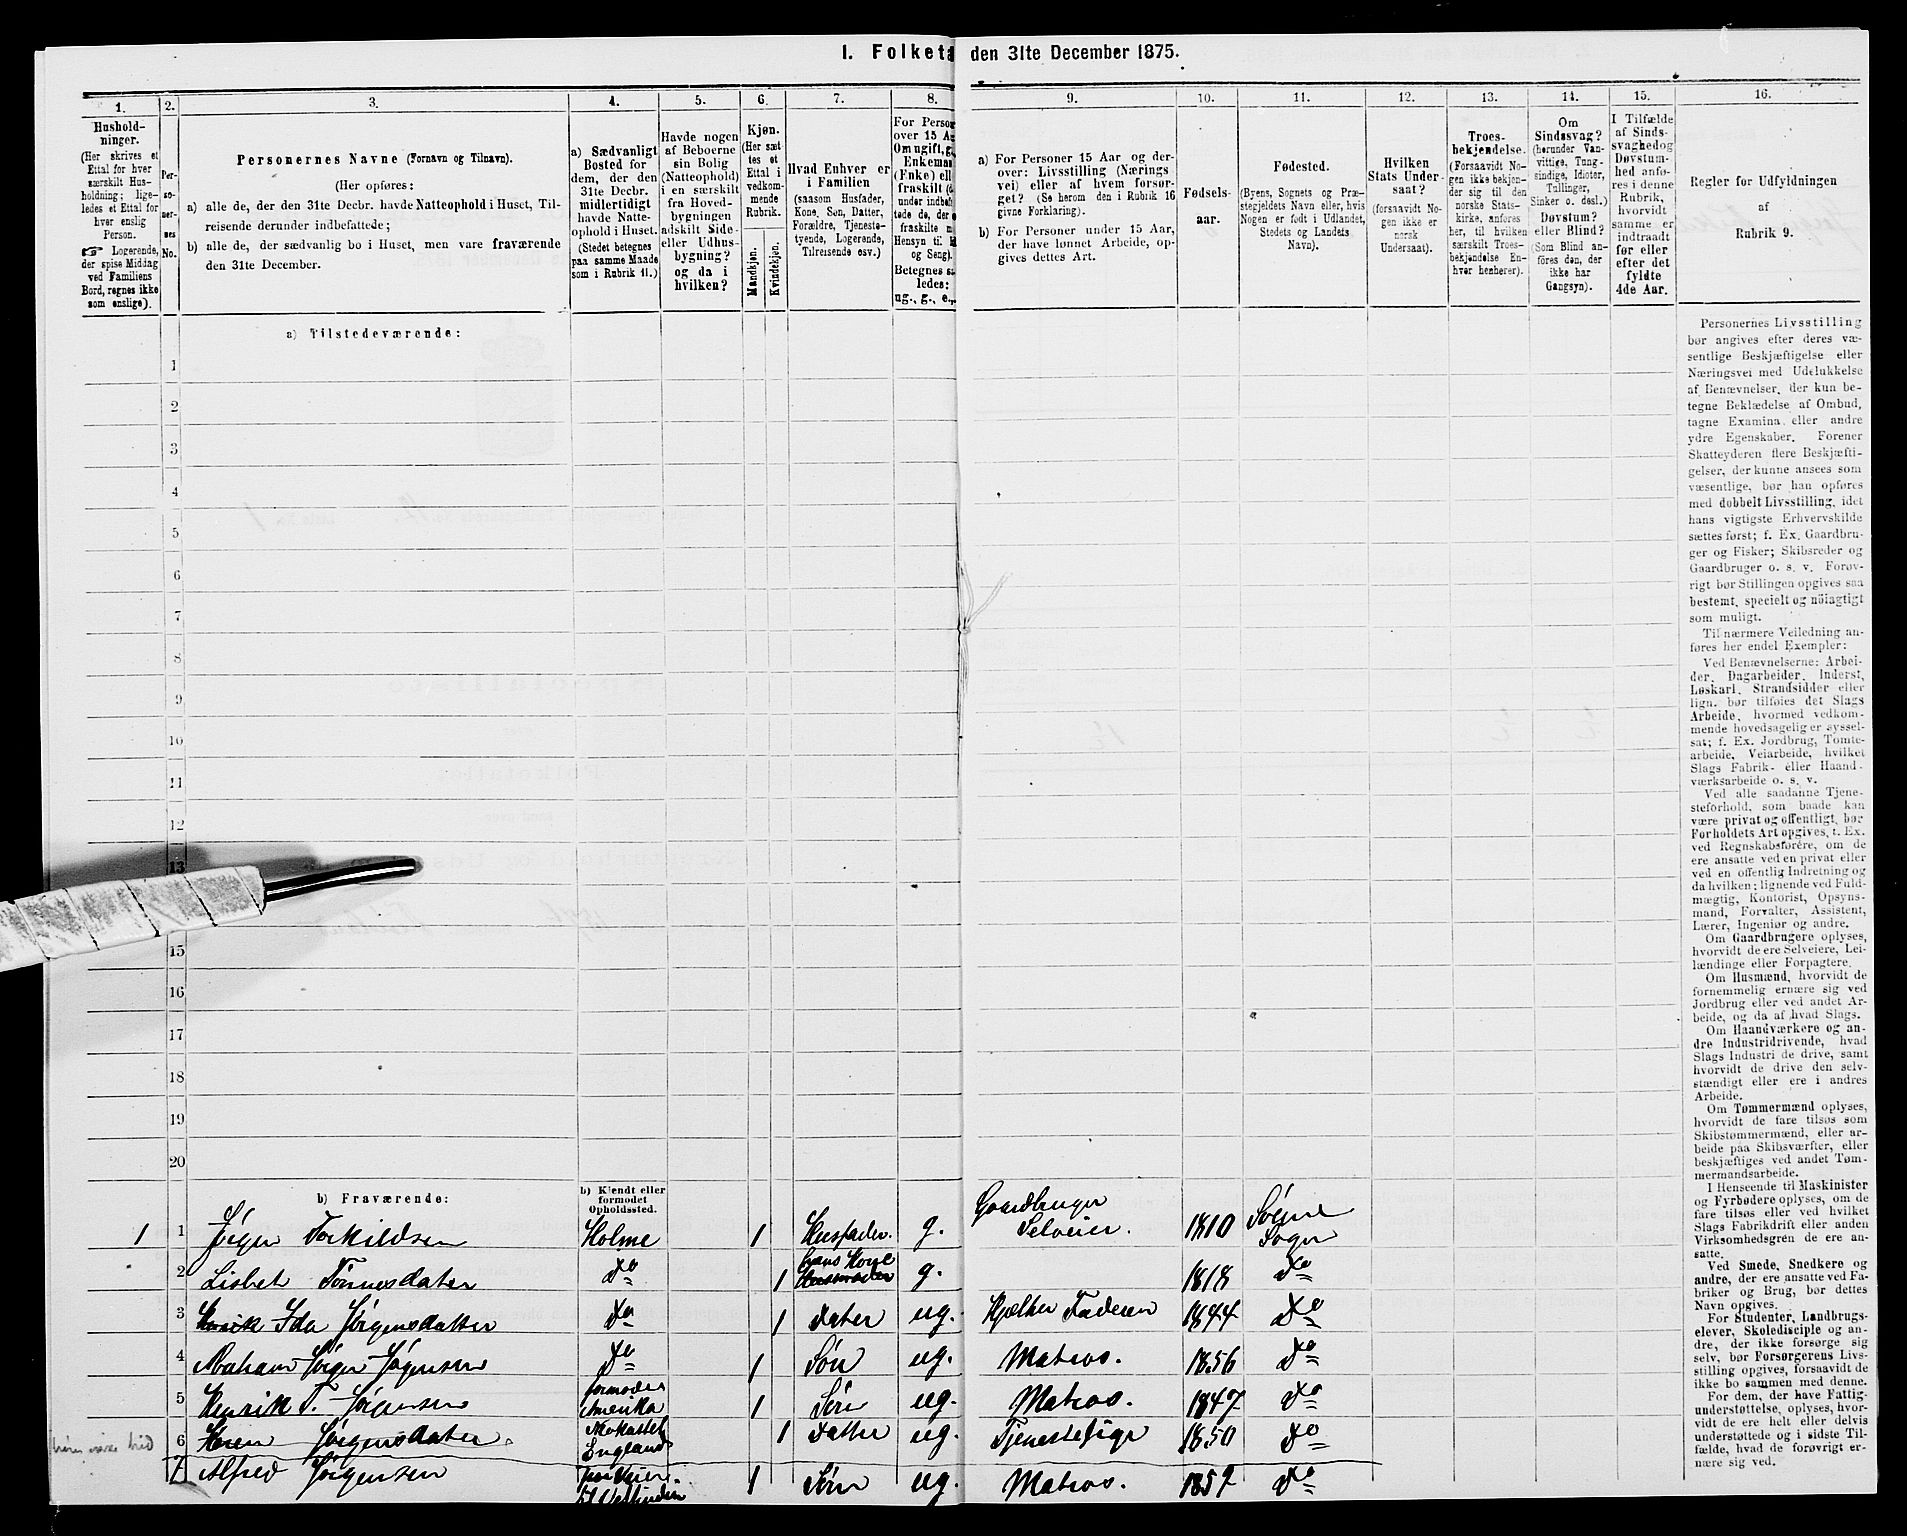 1. Folketæ den 31te December 1875.
1. 2. 3. 4. 5. 6. 7. 8. 9. 10. 11. 12. 13. 14. 15. 16.
Hushold-
ninger.
(Her skrives et
Ettal for hver
særskilt Hus-
holdning; lige-
ledes et Ettal for
hver enslig
Person.
☞ Logerende,
der spise Middag
ved Familiens
Bord, regnes ikke
som enslige).
Per-
so-
ner-
nes
No.
Personernes Navne (Fornavn og Tilnavn).
(Her opføres:
a) alle de, der den 31te Decbr. havde Natteophold i Huset, Til-
reisende derunder indbefattede;
b) alle de, der sædvanlig bo i Huset, men vare fraværende
den 31te December.
a) Sædvanligt
Bosted for
dem, der den
31te Decbr.
midlertidigt
havde Natte-
ophold i Huset.
(Stedet betegnes
paa samme Maade
som i Rubrik 11.)
Havde nogen
af Beboerne
sin Bolig
(Natteophold)
i en særskilt
fra Hoved-
bygningen
adskilt Side-
eller Udhus-
bygning?
og da i
hvilken?
Kjøn.
(Her sæt-
tes et
Ettal i
vedkom-
mende
Rubrik.
Mandskjøn.
Kvindekjøn.
Hvad Enhver er
i Familien
(saasom Husfader,
Kone, Søn, Datter,
Forældre, Tjeneste-
tyende, Logerende,
Tilreisende osv.)
For Person
over 15 A
Om ugift, g
Enkeman
(Enke) ell
fraskilt (d
under indbef
tede de, der e
fraskilte n
Hensyn til B
og Seng).
Betegnes s
ledes:
ug., g., e.,
a) For Personer 15 Aar og der-
over: Livsstilling (Nærings
vei) eller af hvem forsør-
get? (Se herom den i Rubrik 16
givne Forklaring).
b) For Personer under 15 Aar,
der have lønnet Arbeide, op-
gives dettes Art.
Fødsels-
aar.
Fødested.
(Byens, Sognets og Præ-
stegjeldets Navn eller, hvis
Nogen er født i Udlandet,
Stedets og Landets
Navn).
Hvilken
Stats Under-
saat?
(forsaavidt No-
gen ikke er
norsk
Undersaat).
Troes-
bekjendelse.
(Forsaavidt No-
gen ikke bekjen-
der sig til den
norske Stats-
kirke, anføres
her, til hvilken
særskilt Troes-
bekjendelse En-
hver henhører).
Om
Sindssvag?
(herunder Van-
vittige, Tung-
sindige, Idioter,
Tullinger,
Sinker o. desl.)
Døvstum?
eller Blind?
(Som Blind an-
føres den, der
ikke har
Gangsyn).
I Tilfælde
af Sinds-
svaghed og
Døvstum-
hed anfø-
res i denne
Rubrik,
hvorvidt
samme er
indtraadt
før eller
efter det
fyldte
4de Aar.
Regler for Udfyldningen
af
Rubrik 9.
a) Tilstedeværende:
1
2
3
4
5
6
7
8
9
10
11
12
13
15
16
17
18
19
20
Personernes Livsstilling
bør angives efter deres væ-
sentlige Beskjæftigelse eller
Næringsvei med Udelukkelse
af Benævnelser, der kun be-
tegne Beklædelse af Ombud,
tagne Examina eller andre
ydre Egenskaber. Forener
Skatteyderen flere Beskjæfti-
gelser, der kunne ansees som
væsentlige, bør han opføres
med dobbelt Livsstilling, idet
hans vigtigste Erhvervskilde
sættes først; f. Ex. Gaardbru-
ger og Fisker; Skibsreder og
Gaardbruger o. s. v. Forøv-
rigt bør Stillingen opgives saa
bestemt, specielt og nøiagtigt
som muligt.
Til nærmere Veiledning an-
føres her endel Exempler:
Ved Benævnelserne: Arbei-
der, Dagarbeider, Inderst,
Løskarl, Strandsidder eller
lign. bør tilføies det Slags
Arbeide, hvormed vedkom-
mende hovedsagelig er syssel-
sat; f. Ex. Jordbrug, Tomte-
arbeide, Veiarbeide, hvilket
Slags Fabrik- eller Haand-
værksarbeide o. s. v.
Ved alle saadanne Tjene-
steforhold, som baade kan
være privat og offentligt, bør
Forholdets Art opgives, t. Ex.
ved Regnskabsførere, om de
ere ansatte ved en privat eller
ved en offentlig Indretning og
da hvilken; lignende ved Fuld-
mægtig, Kontorist, Opsyns-
mand, Forvalter, Assistent,
Lærer, Ingeniør og andre.
Om Gaardbrugere oplyses,
hvorvidt de ere Selveiere, Lei-
lændinge eller Forpagtere.
Om Husmænd, hvorvidt de
fornemmelig ernære sig ved
Jordbrug eller ved andet Ar-
beide, og da af hvad Slags.
Om Haandværkere og an-
dre Industridrivende, hvad
Slags Industri de drive, samt
hvorvidt de drive den selv-
stændigt eller ere i andres
Arbeide.
Om Tømmermænd oplyses,
hvorvidt de fare tilsøs som
Skibstømmermænd, eller ar-
beide paa Skibsværfter, eller
beskjæftiges ved andet Tøm-
mermandsarbeide.
I Henseende til Maskinister
og Fyrbødere oplyses, om de
fare tilsøs eller ved hvilket
Slags Fabrikdrift eller anden
Virksomhedsgren de ere an-
satte.
Ved Smede, Snedkere og
andre, der ere ansatte ved Fa-
briker og Brug, bør dettes
Navn opgives.
For Studenter, Landbrugs-
elever, Skoledisciple og an-
dre, der ikke forsørge sig
selv, bør Forsørgerens Livs-
stilling opgives, forsaavidt de
ikke bo sammen med denne.
For dem, der have Fattig-
understøttelse, oplyses, hvor-
vidt de ere helt eller delvis
understøttede og i sidste Til-
fælde, hvad de forøvrigt er-
nære sig ved.
b) Fraværende:
b) Kjendt eller
formodet
Opholdssted.
1 1 Jörgen Torkildsen Holme 1 Husfader. g. Gaardbruger Selveier. 1810 Sögne Sogn
2 Lisbet Tönnesdater Do 1 hans Kone Husmoder g. 1818 Do
3 Henrik Ida Jörgensdatter Do 1 Dater ug. Hjælher Faderen 1844 Do
4 Abraham Jörgen Jörgensen Do 1 Sön ug. Matros. 1856 Do
5 Henrik T. Jörgensen formodes Amerika 1 Sön ug. Matros. 1847 Do
6 Jörgensdater England 1 Datter ug. Tjenestepige 1850 Do
7 Alfred Jörgensen 1 Sön ug. Matros. 1857 Do